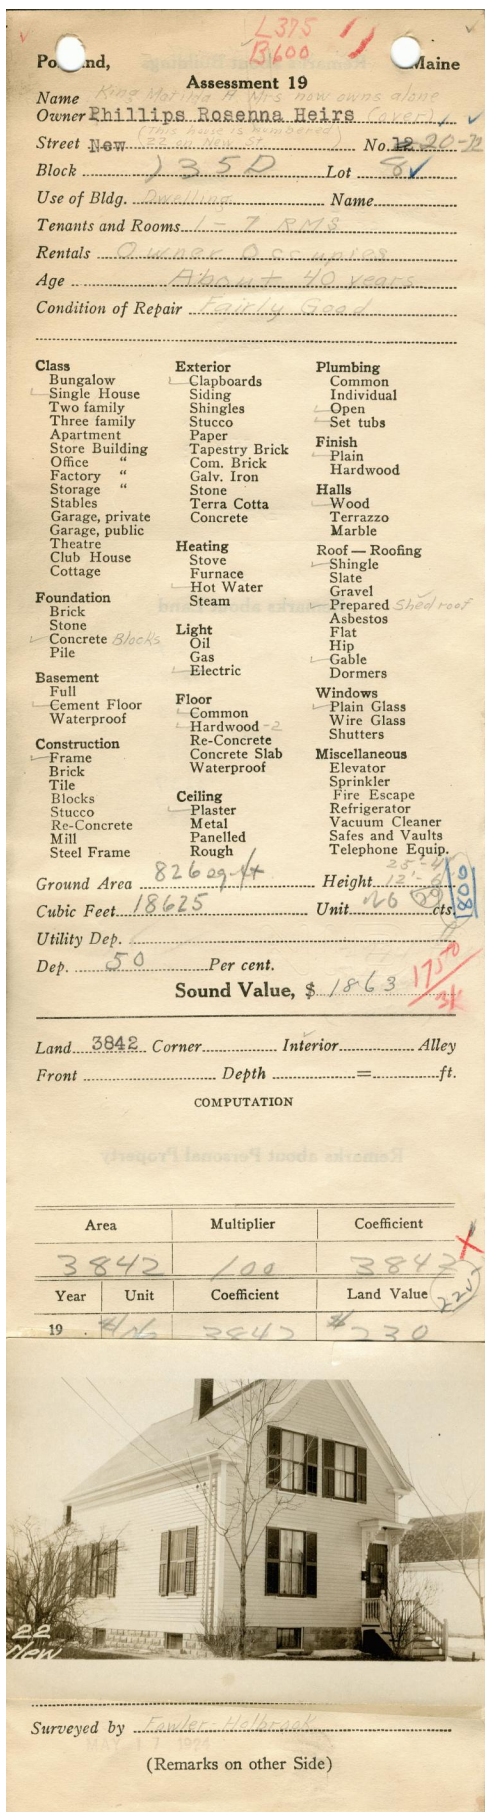 L375
B600
Portland, Maine
Assessment 19
King Matilda A Mrs now owns alone
Name
Owner Phillips Rosenna Heirs (over)
(This house is numbered)
Street New 22 on New St. No. 12 20-22
Block 135D Lot 8
Use of Bldg. Dwelling Name
Tenants and Rooms 1 - 7 RMS
Rentals Owner Occupies
Age About 40 years
Condition of Repair Fairly Good
Class
Bungalow
Single House
Two family
Three family
Apartment
Store Building
Office "
Factory "
Storage "
Stables
Garage, private
Garage, public
Theatre
Club House
Cottage
Foundation
Brick
Stone
Concrete Blocks
Pile
Basement
Full
Cement Floor
Waterproof
Construction
Frame
Brick
Tile
Blocks
Stucco
Re-Concrete
Mill
Steel Frame
Exterior
Clapboards
Siding
Shingles
Stucco
Paper
Tapestry Brick
Com. Brick
Galv. Iron
Stone
Terra Cotta
Concrete
Heating
Stove
Furnace
Hot Water
Steam
Light
Oil
Gas
Electric
Floor
Common
Hardwood -2
Re-Concrete
Concrete Slab
Waterproof
Ceiling
Plaster
Metal
Panelled
Rough
Plumbing
Common
Individual
Open
Set tubs
Finish
Plain
Hardwood
Halls
Wood
Terrazzo
Marble
Roof — Roofing
Shingle
Slate
Gravel
Prepared Shed roof
Asbestos
Flat
Hip
Gable
Dormers
Windows
Plain Glass
Wire Glass
Shutters
Miscellaneous
Elevator
Sprinkler
Fire Escape
Refrigerator
Vacuum Cleaner
Safes and Vaults
Telephone Equip.
Ground Area 826 sq. ft Height 12'-6
Cubic Feet 18625 Unit cts.
Utility Dep.
Dep. 50 Per cent.
Sound Value, $ 1863
1750
Land 3842 Corner Interior Alley
Front Depth = ft.
COMPUTATION
Remarks about Personal Property
Area Multiplier Coefficient
3842 100 3842
Year Unit Coefficient Land Value
19 3842 230
22
New
Surveyed by Fowler-Holbrook
(Remarks on other Side)